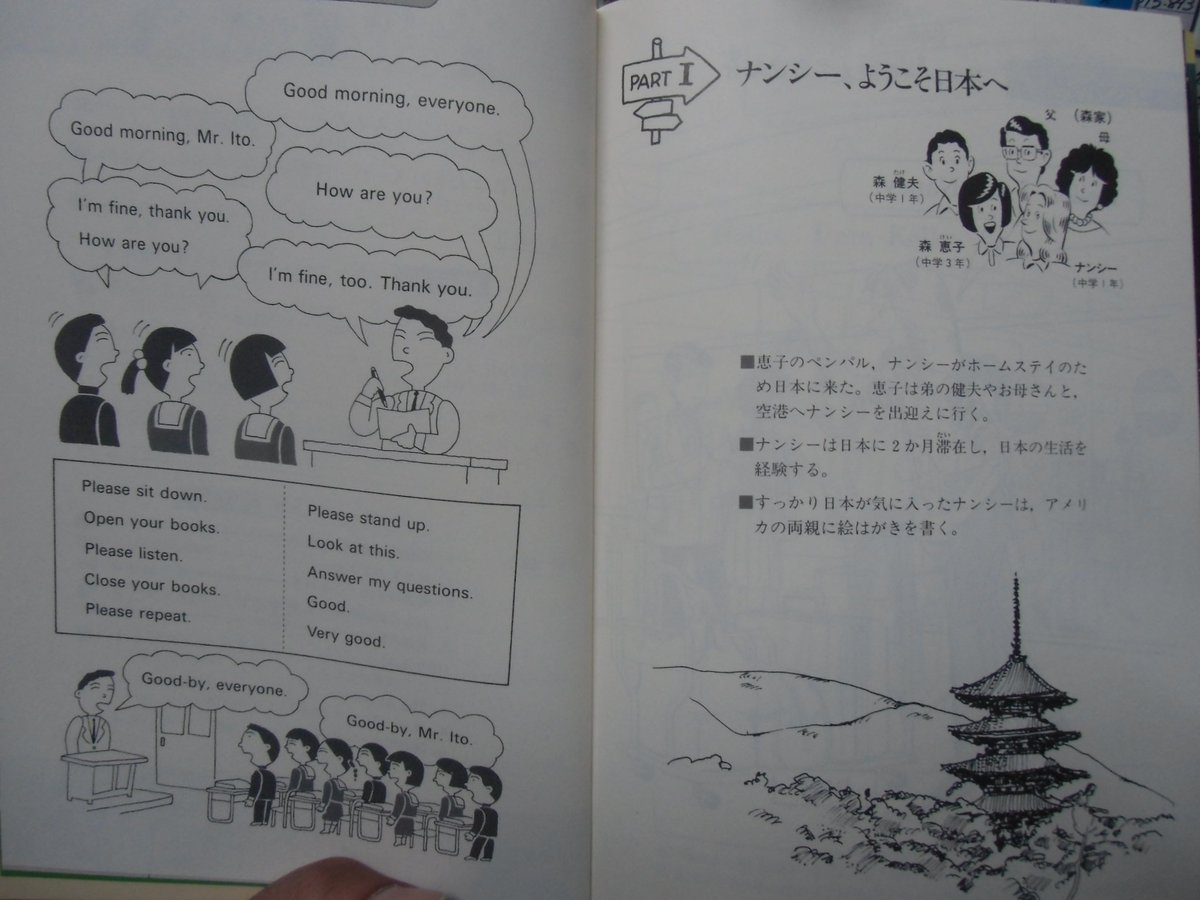 Good morning, everyone.
Good morning, Mr. Ito.
How are you?
I'm fine, thank you.
How are you?
I'm fine, too. Thank you.
Please sit down.
Open your books.
Please listen.
Close your books.
Please repeat.
Please stand up.
Look at this.
Answer my questions.
Good.
Very good.
Good-by, everyone.
Good-by, Mr. Ito.
PART I
ナンシー、ようこそ日本へ
父 (森家)
母
たけ
森 健夫
(中学1年)
けい
森 恵子
(中学3年)
ナンシー
(中学1年)
■恵子のペンパル，ナンシーがホームステイのた
め日本に来た。恵子は弟の健夫やお母さんと，
空港へナンシーを出迎えに行く。
たい
■ナンシーは日本に2か月滞在し，日本の生活を
経験する。
■すっかり日本が気に入ったナンシーは，アメリ
カの両親に絵はがきを書く。